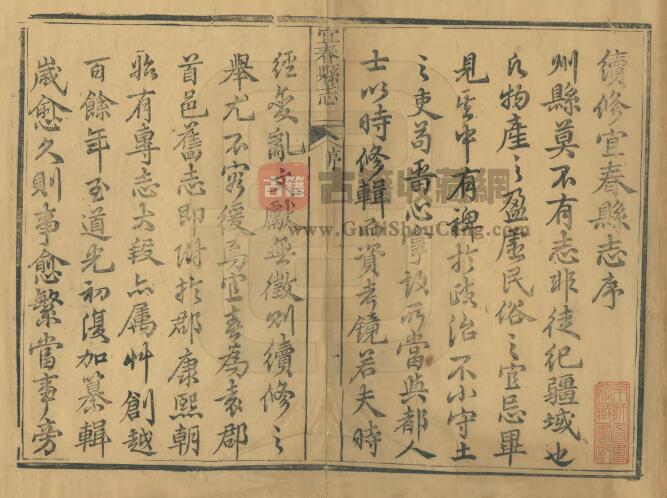 續修宜春縣志序
州縣莫不有志非徒紀疆域也
物產之盈虛民俗之宜忌畢
見其中有裨於政治不小守土
之吏苟留心掌故所當與都人
士以時修輯而資考鏡若夫時
宜春縣志
序
經變亂文獻無徵則續修之
舉尤不容緩焉宜春為袁郡
首邑舊志即附於郡康熙朝
始有專志大段亦属艸創越
百餘年至道光初復加纂輯
歲愈久則事愈繁當事旁
古籍
古籍收藏網
www.GuJiShouCang.com